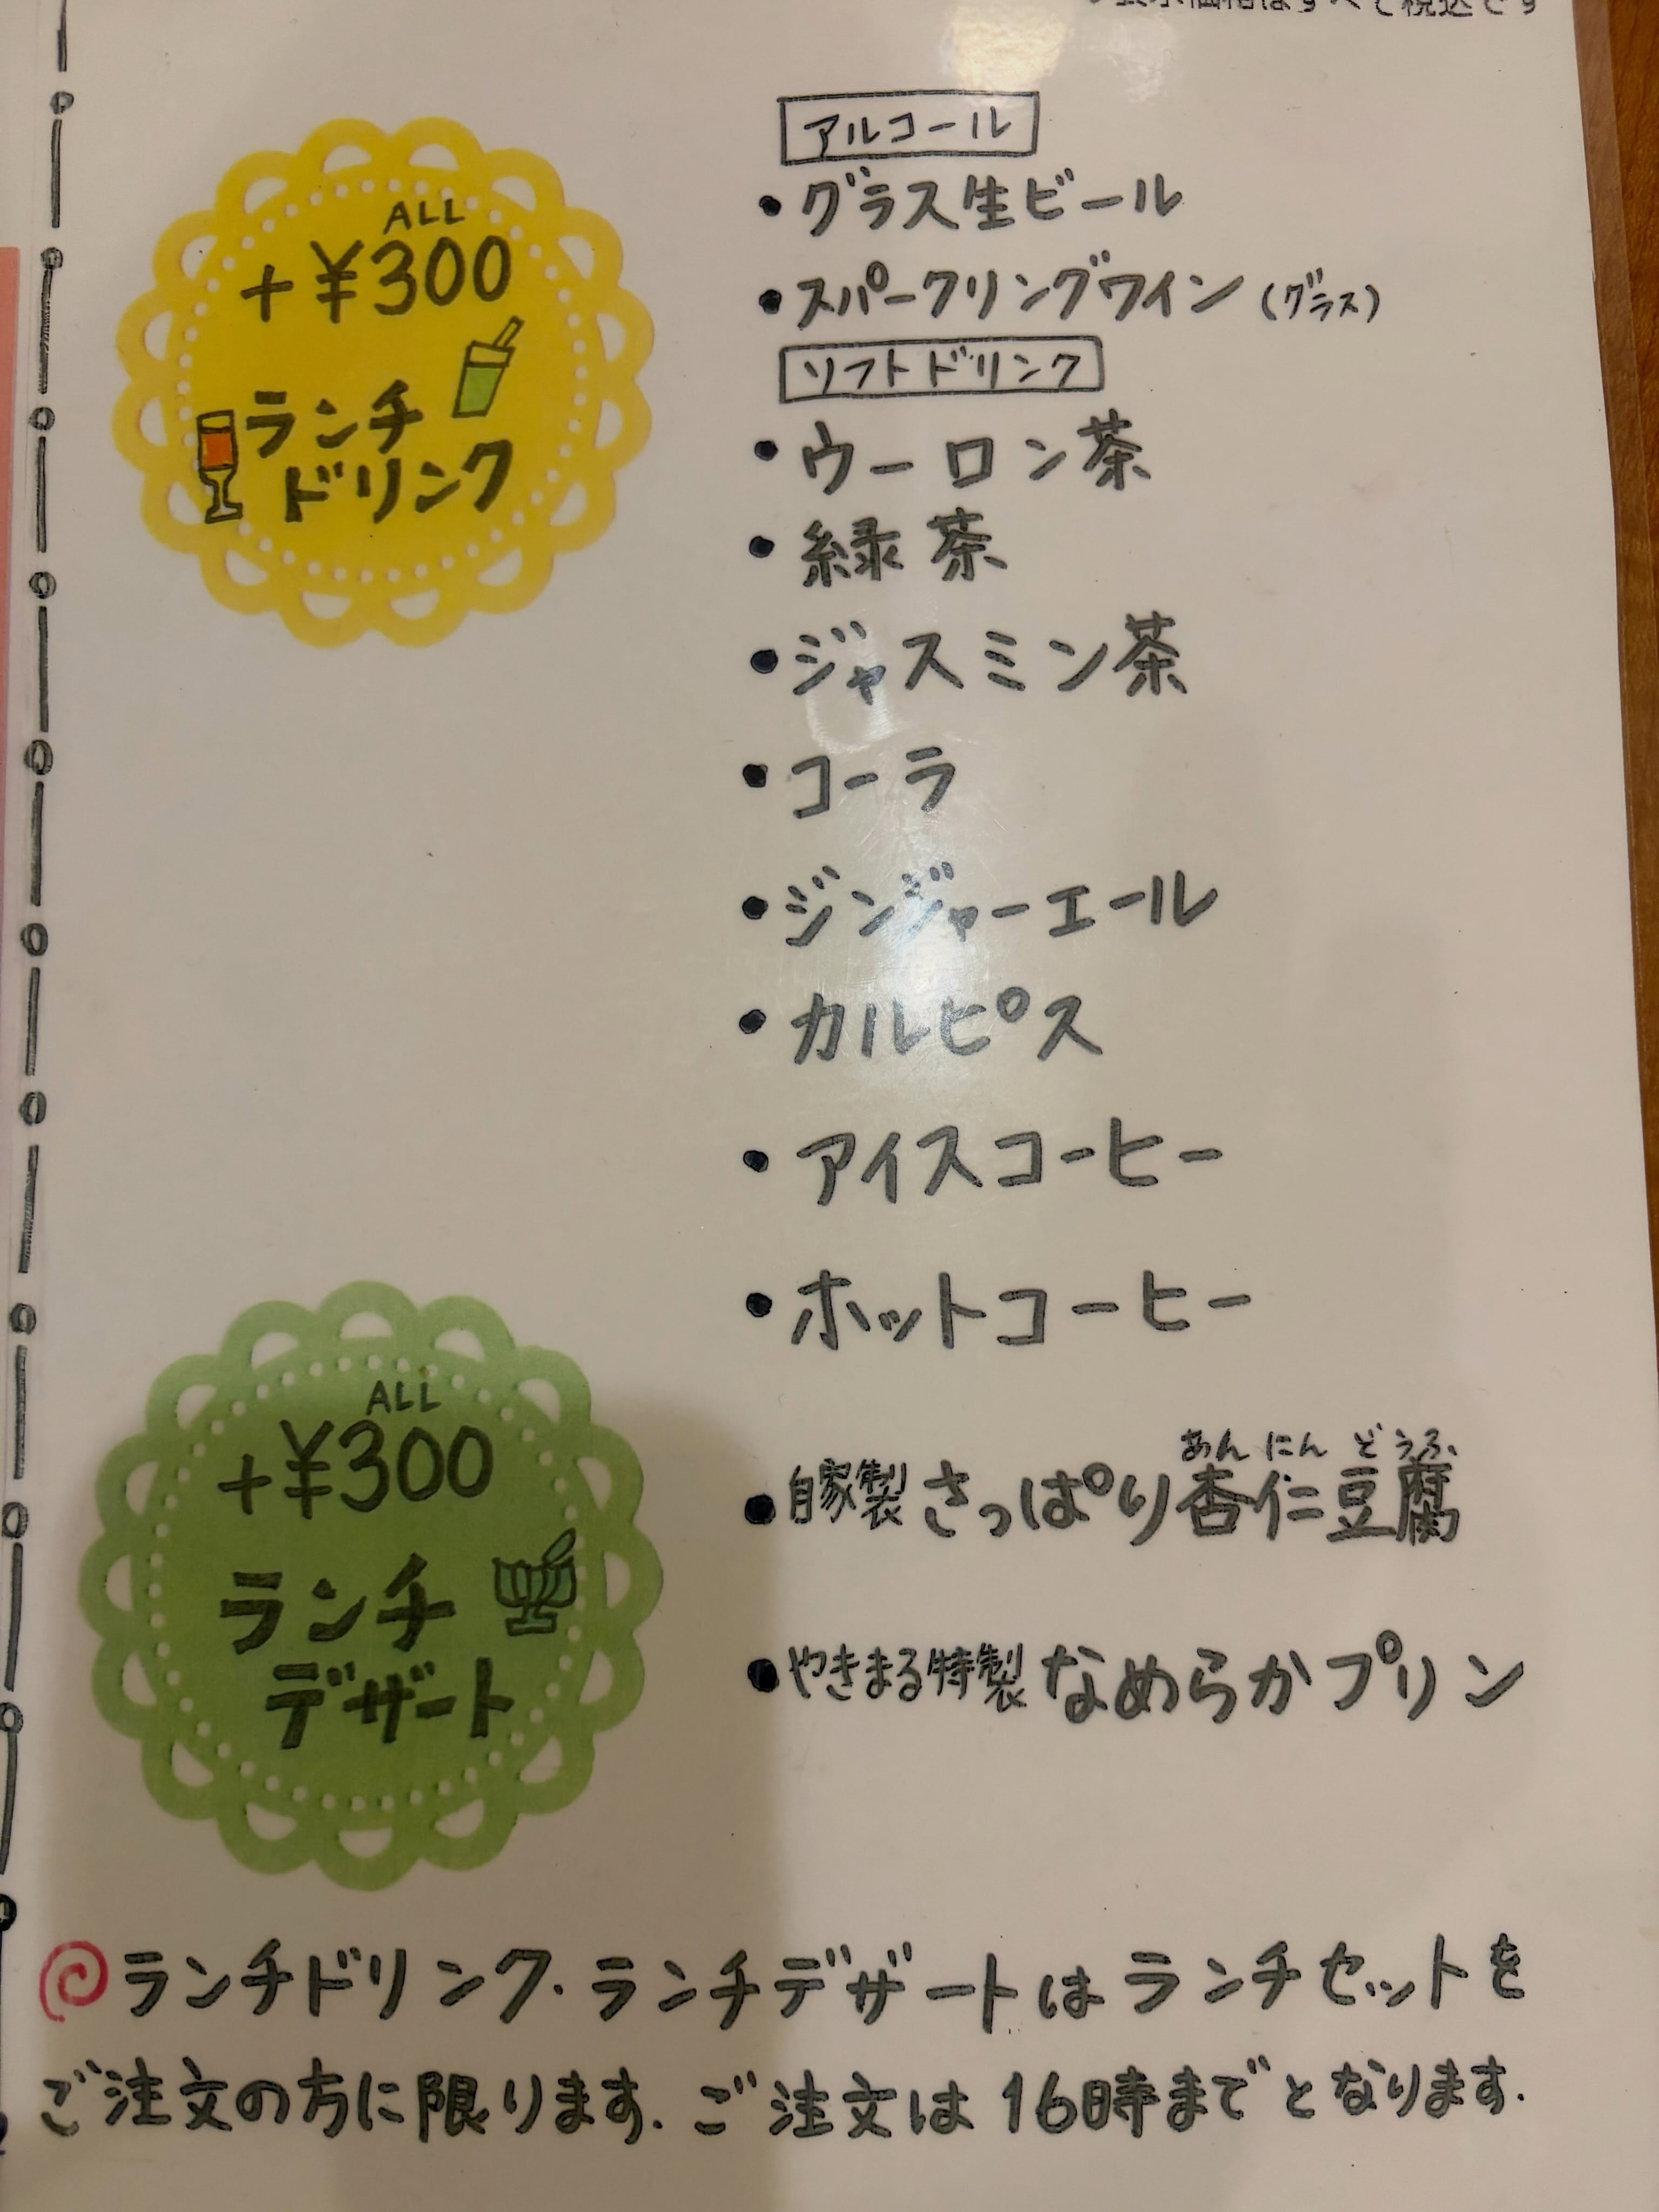 表示価格はすべて税込です
ALL
+¥300
ランチ
ドリンク
アルコール
・グラス生ビール
・スパークリングワイン(グラス)
ソフトドリンク
・ウーロン茶
・緑茶
・ジャスミン茶
・コーラ
・ジンジャーエール
・カルピス
・アイスコーヒー
・ホットコーヒー
ALL
+¥300
ランチ
デザート
あんにんどうふ
・自家製さっぱり杏仁豆腐
・やきまる特製なめらかプリン
ランチドリンク・ランチデザートはランチセットを
ご注文の方に限ります。ご注文は16時までとなります。